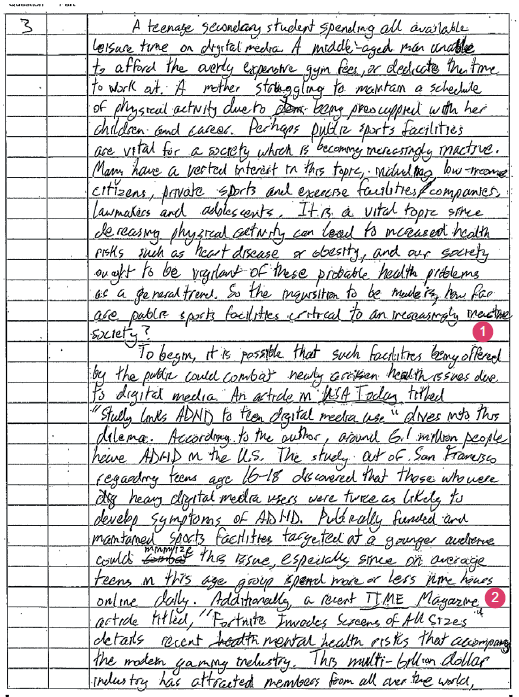 3
A teenage secondary student spending all available
leisure time on digital media. A middle-aged man unable
to afford the overly expensive gym fees, or dedicate the time
to work out. A mother struggling to maintain a schedule
of physical activity due to being preoccupied with her
children and career. Perhaps public sports facilities
are vital for a society which is becoming increasingly inactive.
Many have a vested interest in this topic, including low-income
citizens, private sports and exercise facilities/companies,
lawmakers and adolescents. It is a vital topic since
decreasing physical activity can lead to increased health
risks such as heart disease or obesity, and our society
ought to be vigilant of these probable health problems
as a general trend. So the inquisition to be made is, how far
are public sports facilities critical to an increasingly inactive
society?
1
To begin, it is possible that such facilities being offered
by the public could combat newly arisen health issues due
to digital media. An article in USA Today, titled
"Study links ADHD to teen digital media use" dives into this
dilema. According to the author, around 6.1 million people
have ADHD in the U.S. The study out of San Francisco
regarding teens age 16-18 discovered that those who were
heavy digital media users were twice as likely to
develop symptoms of ADHD. Publically funded and
maintained sports facilities targeted at a younger audience
could minimize this issue, especially since on average
teens in this age group spend more or less nine hours
online daily. Additionally, a recent TIME Magazine
2
article titled, "Fortnite Invades Screens of All Sizes"
details recent health mental health risks that accompany
the modern gaming industry. This multi-billion dollar
industry has attracted members from all over the world,